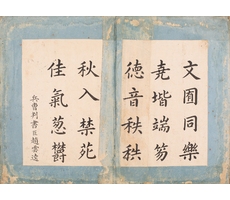 文囿同樂
堯堦端笏
德音秩秩
秋入禁苑
佳氣葱鬱
兵曹判書臣趙雲逵